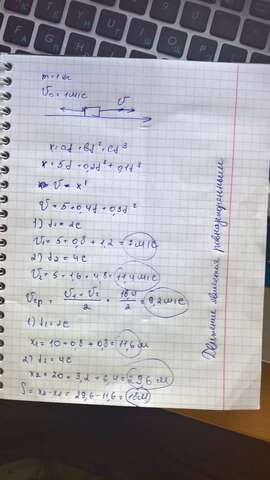 m = 1 кг
V₀ = 1 м/с
V
x = at + bt² + ct³
x = 5t + 0,2t² + 0,1t³
V = x'
V = 5 + 0,4t + 0,3t²
1) t₁ = 2c
V₁ = 5 + 0,8 + 1,2 = 7 м/с
2) t₂ = 4c
V₂ = 5 + 1,6 + 4,8 = 11,4 м/с
Vср = (V₁ + V₂)/2 = 18,4/2 = 9,2 м/с
1) t₁ = 2c
x₁ = 10 + 0,8 + 0,8 = 11,6 м
2) t₂ = 4c
x₂ = 20 + 3,2 + 6,4 = 29,6 м
S = x₂ - x₁ = 29,6 - 11,6 = 18 м
Движение является